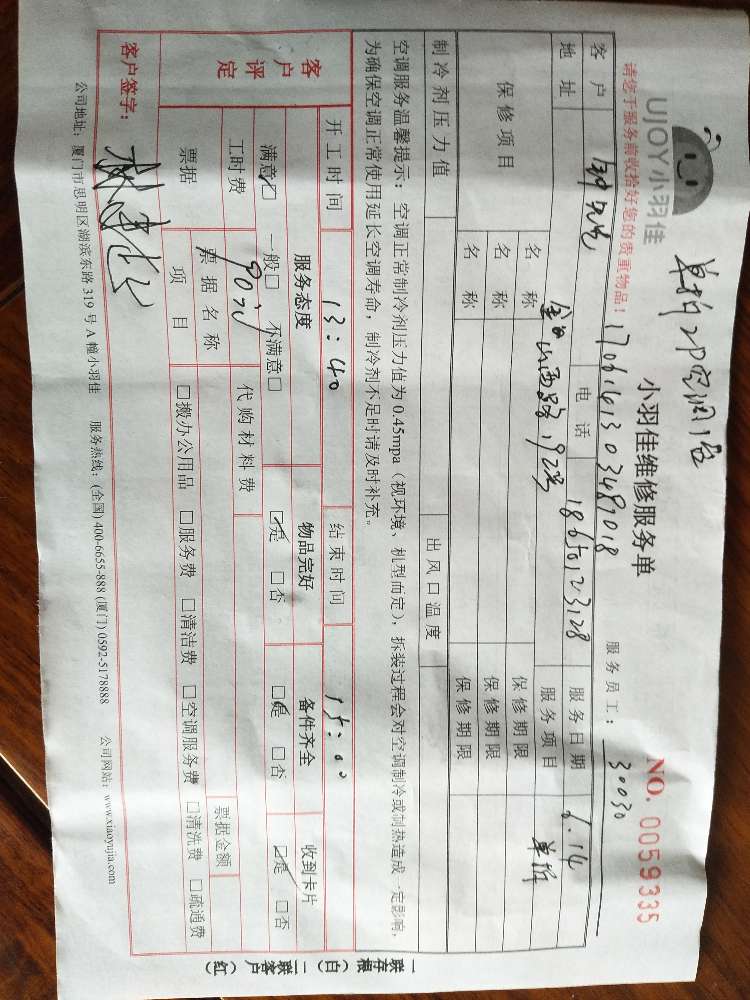 单拆2P空调1台
UJOY小羽佳
小羽佳维修服务单
NO. 0059335
请您于服务前收拾好您的贵重物品!
服务员工: 30030
客户 电话 18650123128 服务日期 6.14
地址 山西路192号 服务项目 单拆
保修项目 名称 保修期限
名称 保修期限
名称 保修期限
制冷剂压力值 出风口温度
空调服务温馨提示:空调正常制冷剂压力值为0.45mpa(视环境、机型而定),拆装过程会对空调制冷或制热造成一定影响,
为确保空调正常使用延长空调寿命,制冷剂不足时请及时补充。
开工时间 13:40 结束时间 15:00
客户评定 服务态度 物品完好 备件齐全 收到卡片
满意☑ 一般□ 不满意□ ☑是 □否 ☑是 □否 ☑是 □否
工时费 90元 代购材料费
票据 票据名称 票据金额
项目 □搬办公用品 □服务费 □清洁费 □空调服务费 □清洗费 □疏通费
客户签字:
公司地址:厦门市思明区湖滨东路319号A幢小羽佳 服务热线:(全国)400-6655-888 (厦门)0592-5178888 公司网站:www.xiaoyujia.com
一联存根(白) 二联客户(红)